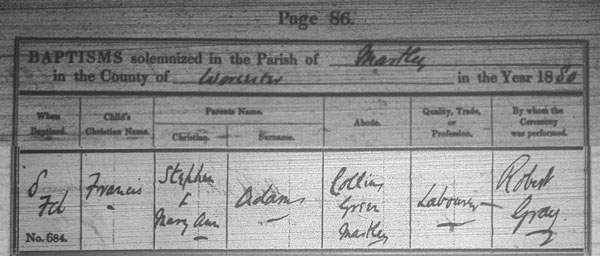 Page 86.
BAPTISMS solemnized in the Parish of Martley
in the County of Worcester in the Year 1880
When Baptized.
Child's Christian Name.
Parents Name.
Christian.
Surname.
Abode.
Quality, Trade, or Profession.
By whom the Ceremony was performed.
8
Feb
No. 684.
Francis
Stephen
&
Mary Ann
Adams
Collins
Green
Martley
Labourer
Robert
Gray.